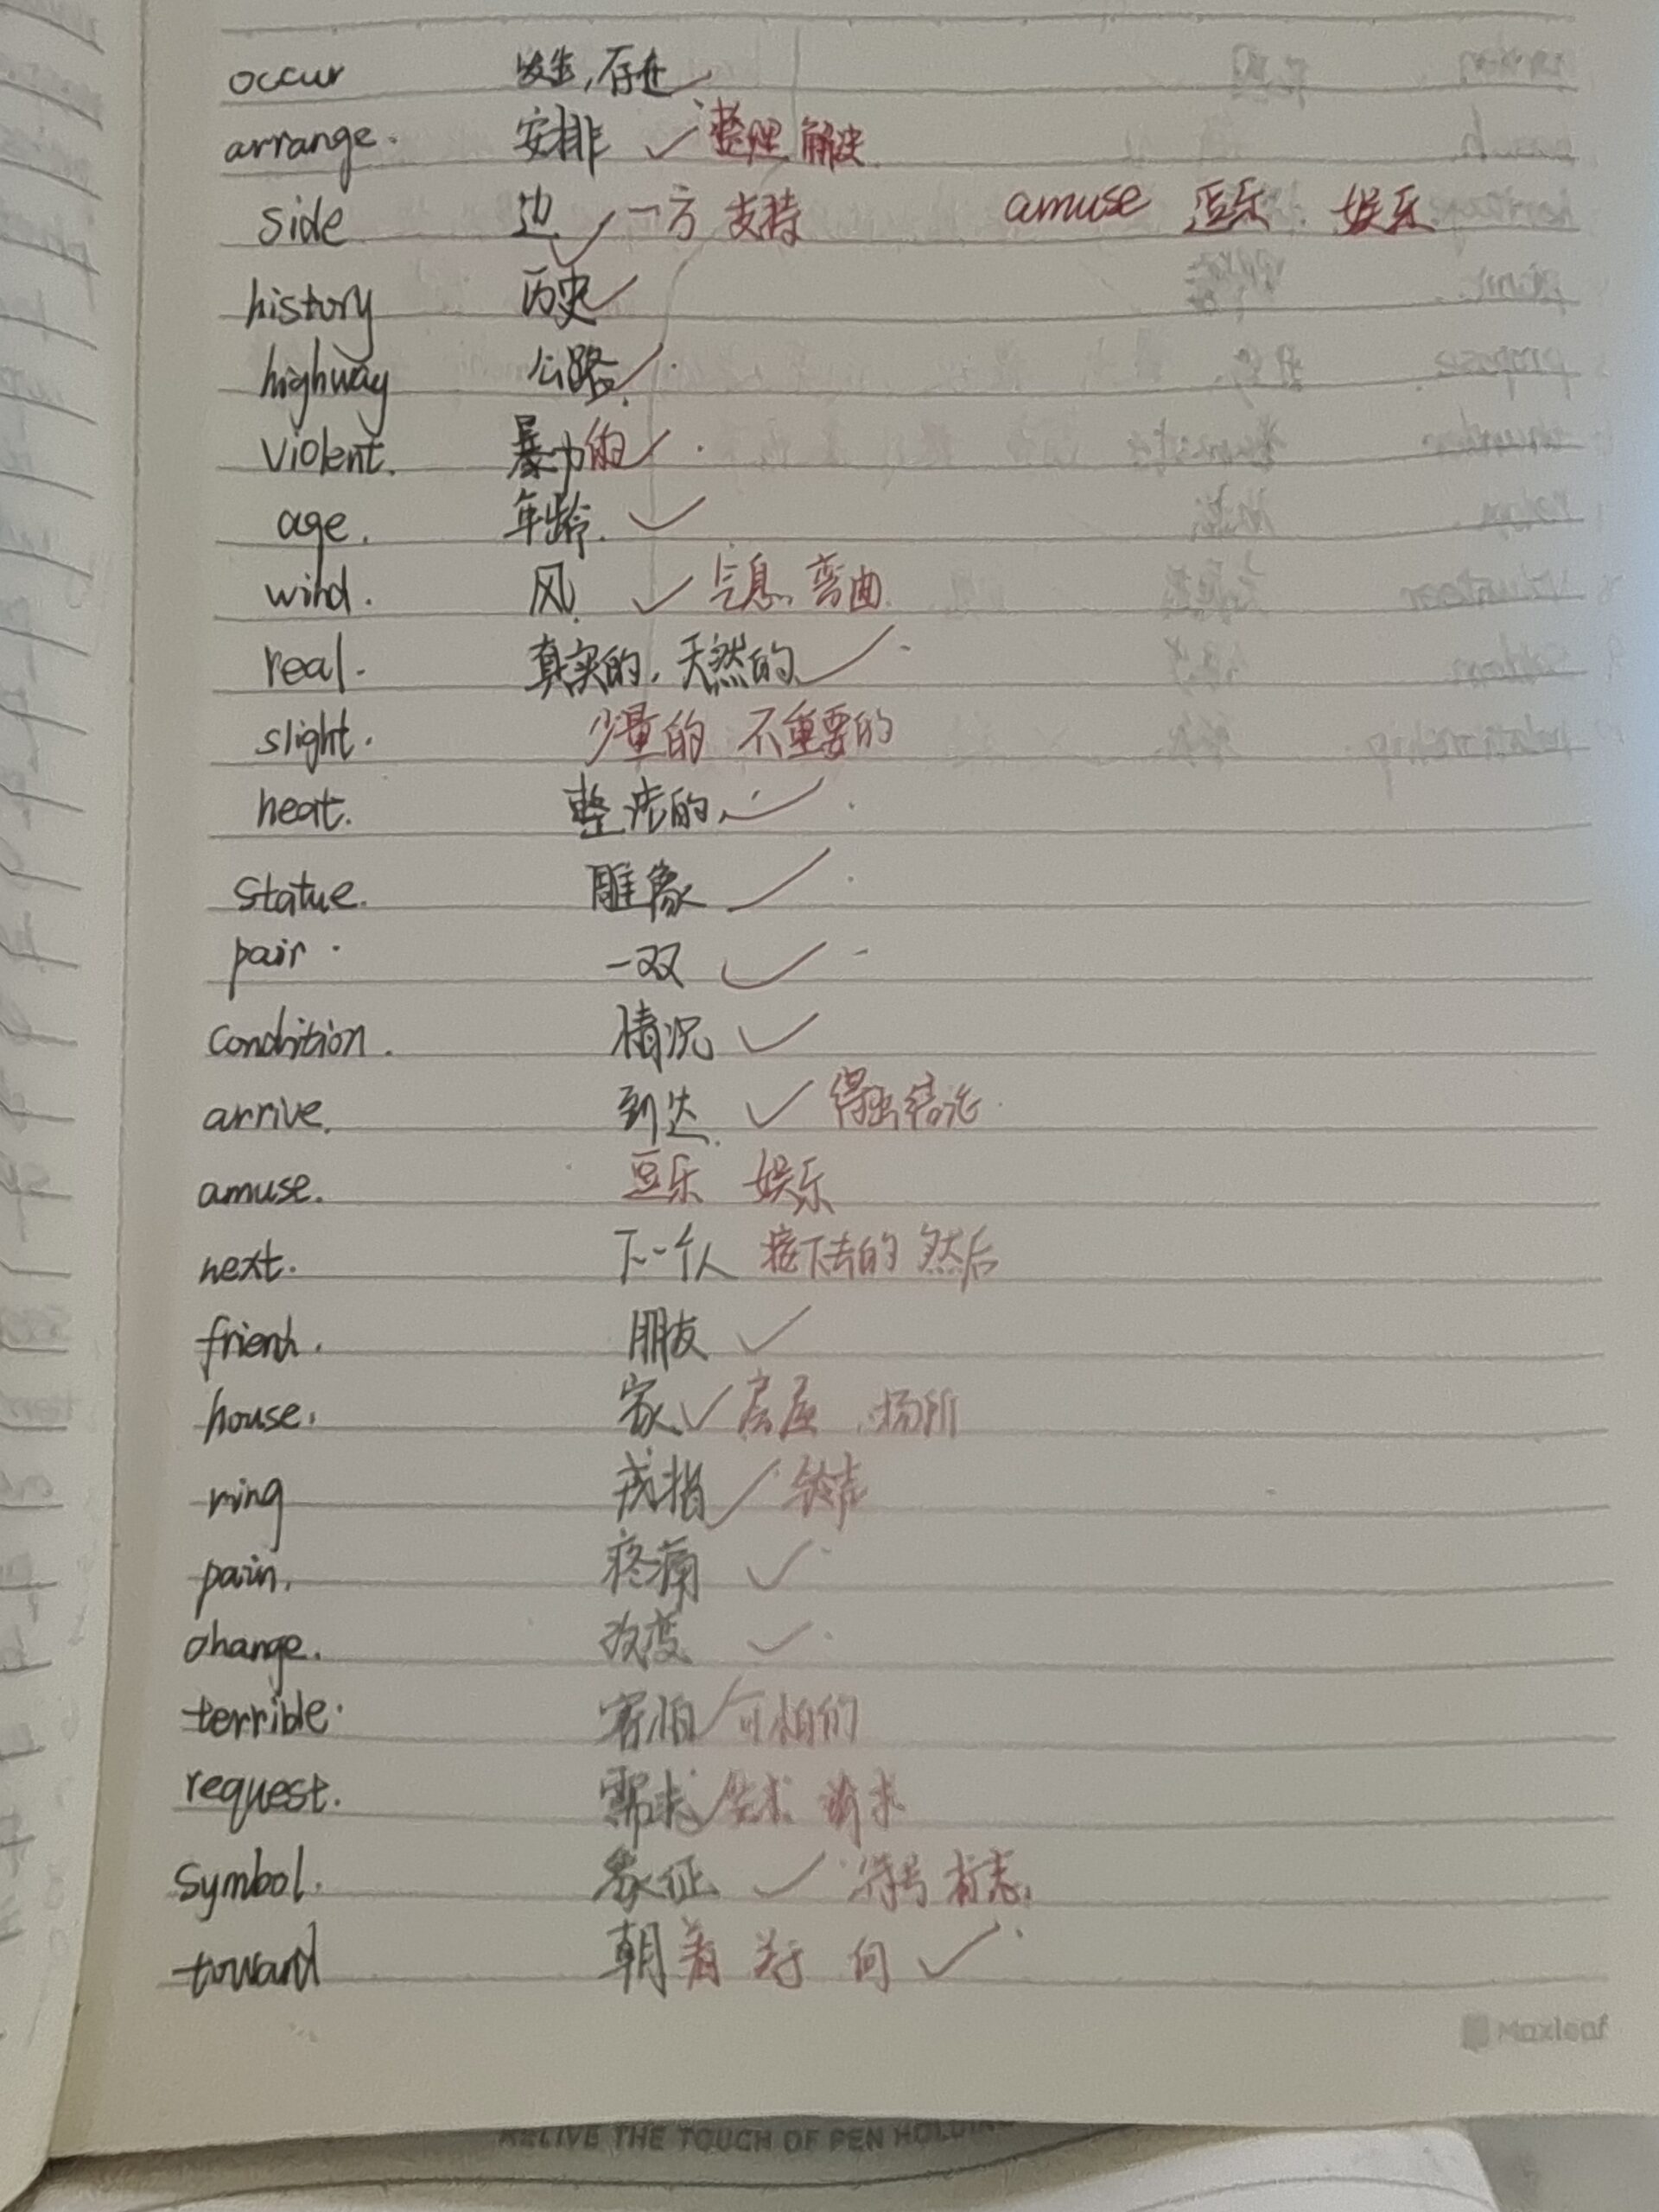 occur 发生,存在
arrange. 安排 整理 解决
side 边 一方 支持 amuse 逗乐 娱乐
history 历史
highway 公路
violent. 暴力的
age. 年龄.
wind. 风 气息 弯曲
real. 真实的,天然的
slight. 少量的 不重要的
neat. 整洁的
statue. 雕象
pair. 一双
condition. 情况
arrive. 到达 得出结论
amuse. 逗乐 娱乐
next. 下一个人 接下去的 然后
friend. 朋友
house. 家 房屋 场所
ring 戒指 铃声
pain. 疼痛
change. 改变
terrible. 害怕 可怕的
request. 需求 请求
symbol. 象征 符号 标志
toward 朝着 关于 向
Maxleaf
RELIVE THE TOUCH OF PEN HOLDING